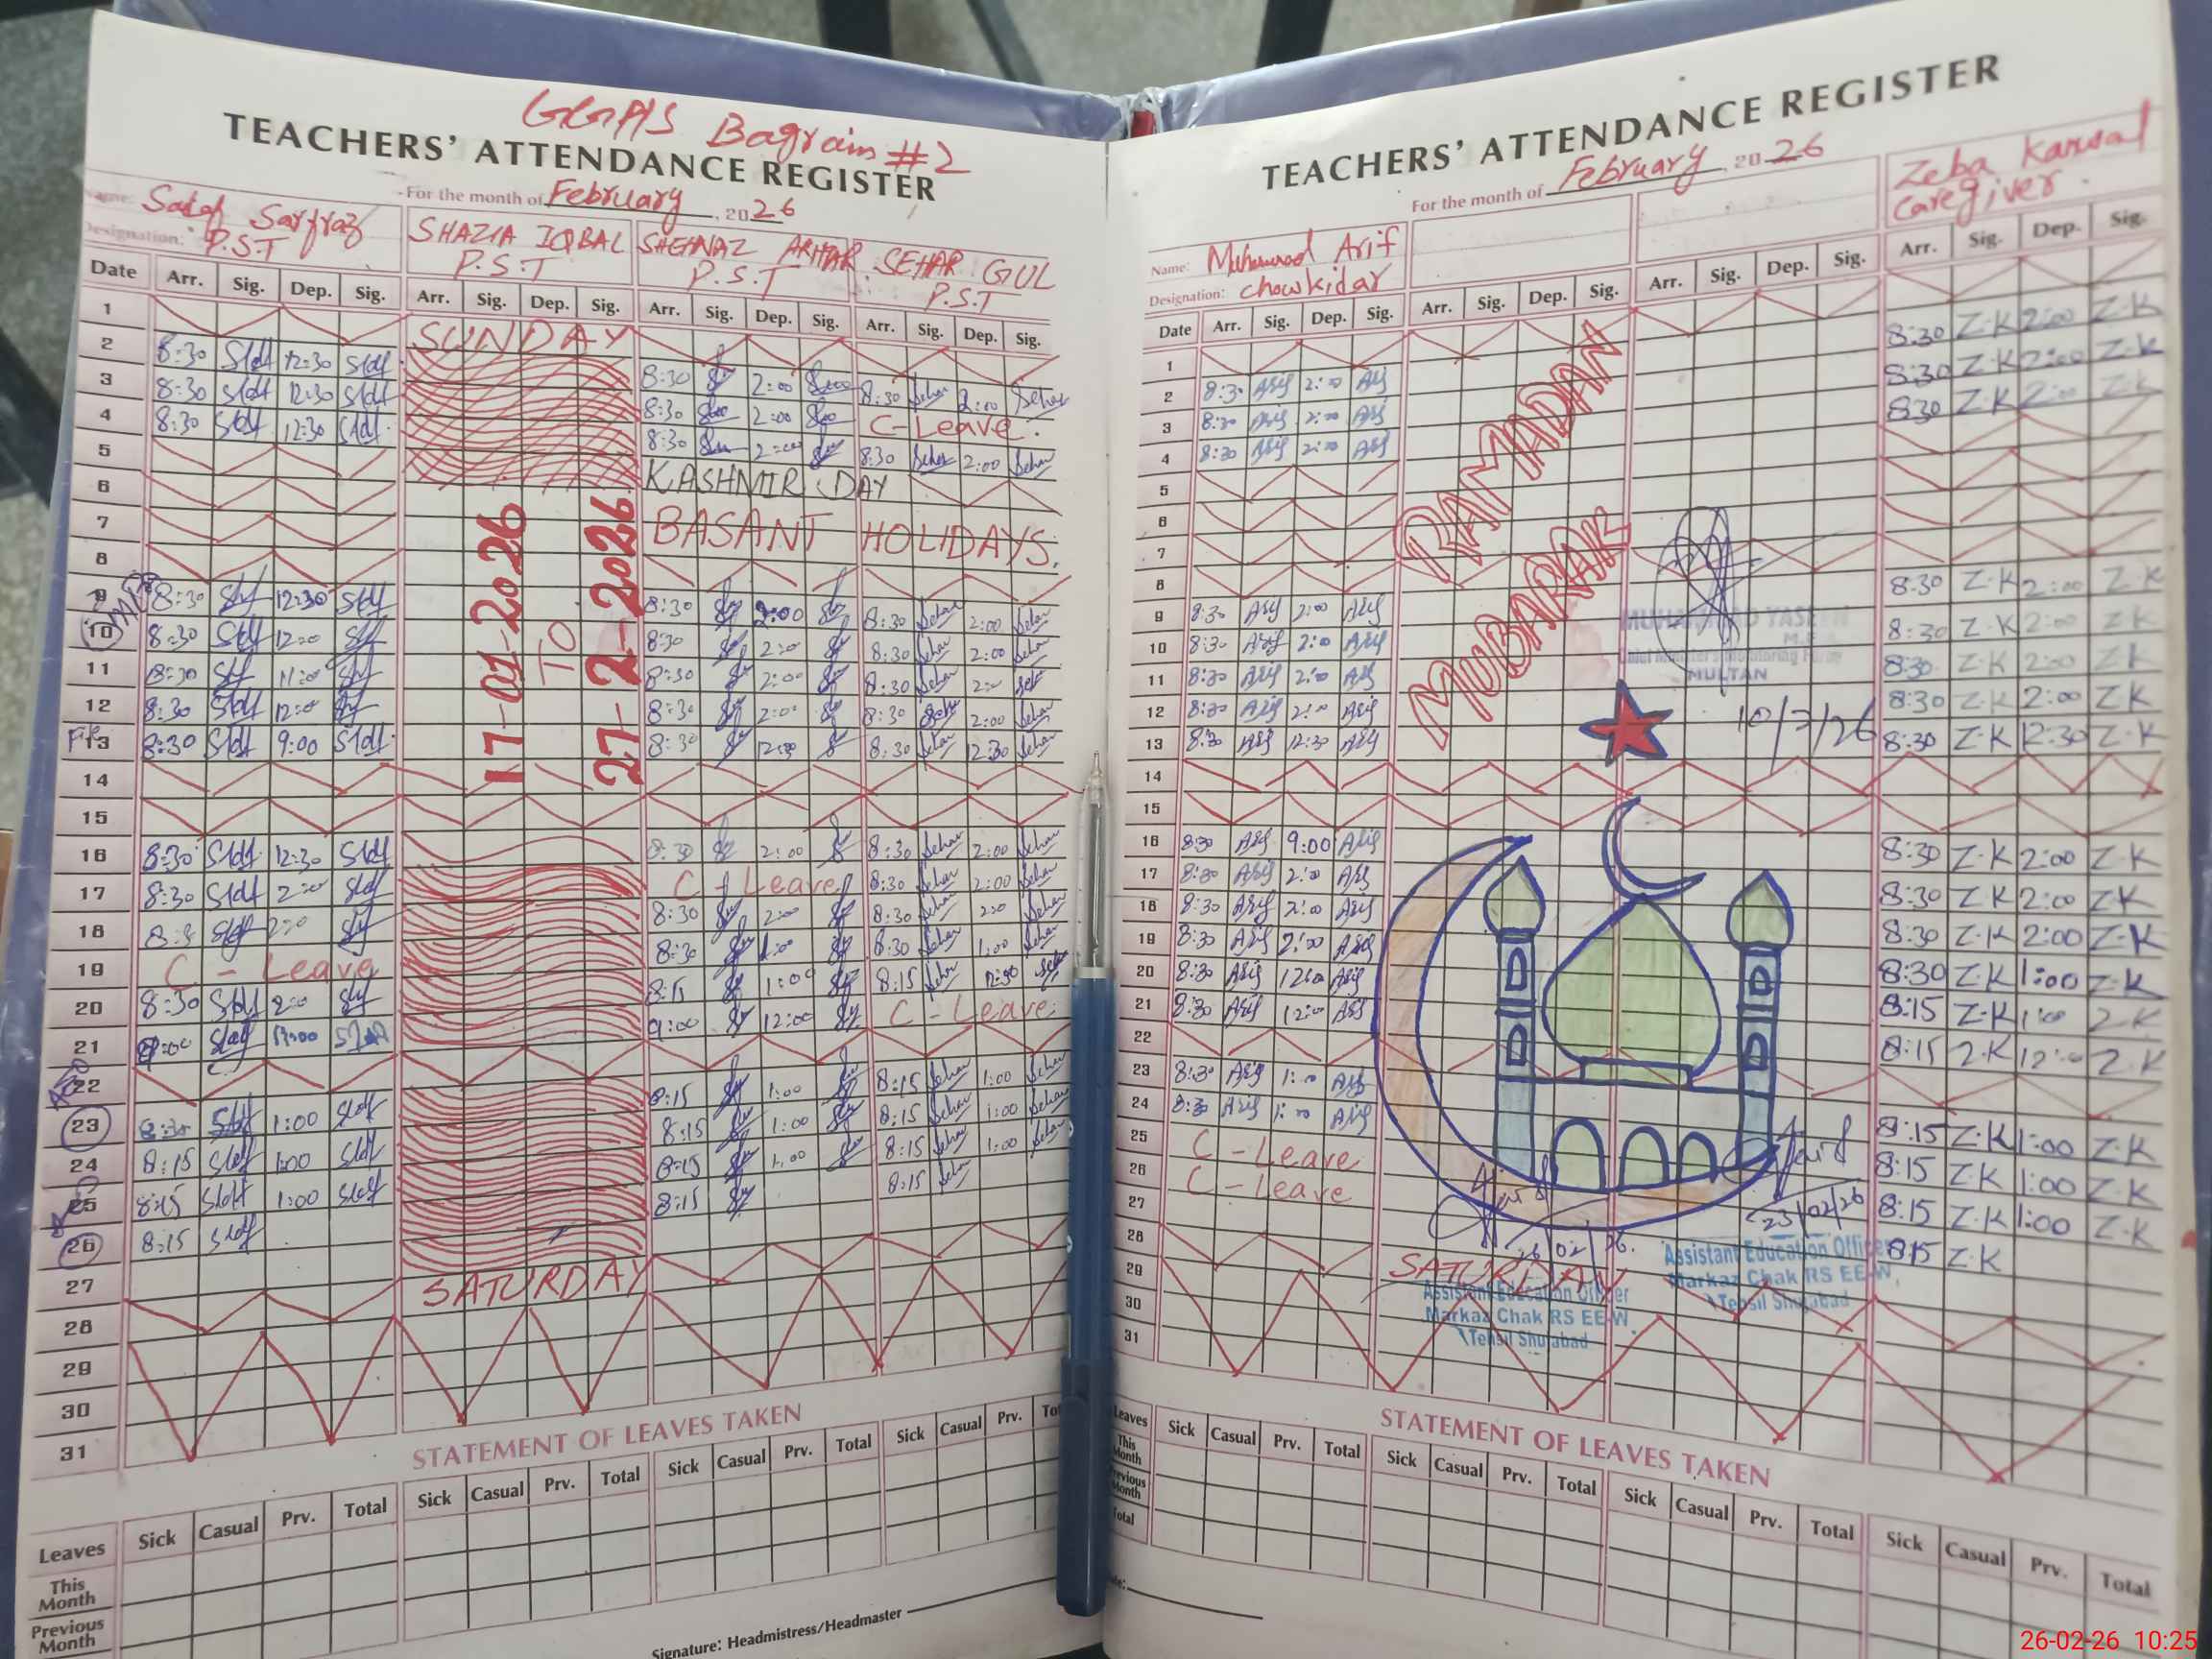 GGPS Bagrain #2
TEACHERS' ATTENDANCE REGISTER
For the month of February, 2026
Name: Sadaf Sarfraz
Designation: P.S.T
SHAZIA IQBAL
P.S.T
SHEHNAZ AKHTAR
P.S.T
SEHAR GUL
P.S.T
Date Arr. Sig. Dep. Sig. Arr. Sig. Dep. Sig. Arr. Sig. Dep. Sig. Arr. Sig. Dep. Sig.
1 SUNDAY
2 8:30 12:30 8:30 2:00 8:30 Sehar 2:00 Sehar
3 8:30 12:30 8:30 2:00 C-Leave
4 8:30 12:30 8:30 2:00 8:30 Sehar 2:00 Sehar
5 KASHMIR DAY
6 BASANT HOLIDAYS
7
8
9 8:30 12:30 8:30 2:00 8:30 Sehar 2:00 Sehar
10 8:30 12:00 8:30 2:00 8:30 Sehar 2:00 Sehar
11 8:30 11:00 8:30 2:00 8:30 Sehar 2:00
12 8:30 12:00 8:30 2:00 8:30 Sehar 2:00 Sehar
13 8:30 9:00 8:30 12:30 8:30 Sehar 12:30 Sehar
17-01-2026
TO
27-2-2026
14
15
16 8:30 12:30 8:30 2:00 8:30 Sehar 2:00 Sehar
17 8:30 2:00 C-Leave 8:30 Sehar 2:00 Sehar
18 2:00 8:30 2:00 8:30 Sehar Sehar
19 C-Leave 8:30 1:00 8:30 Sehar 1:00 Sehar
20 8:30 2:00 8:15 1:00 8:15 Sehar 12:30 Sehar
21 9:00 9:00 12:00 C-Leave
22
23 8:30 1:00 8:15 1:00 8:15 Sehar 1:00 Sehar
24 8:15 1:00 8:15 1:00 8:15 Sehar 1:00 Sehar
25 8:15 1:00 8:15 1:00 8:15 Sehar 1:00 Sehar
26 8:15 8:15 8:15 Sehar
27
28 SATURDAY
29
30
31
STATEMENT OF LEAVES TAKEN
Leaves Sick Casual Prv. Total Sick Casual Prv. Total Sick Casual Prv. Total Sick Casual Prv.
This Month
Previous Month
Signature: Headmistress/Headmaster
TEACHERS' ATTENDANCE REGISTER
For the month of February, 2026
Name: Muhammad Arif
Designation: Chowkidar
Zeba Kanwal
Caregiver
Date Arr. Sig. Dep. Sig. Arr. Sig. Dep. Sig. Arr. Sig. Dep. Sig. Arr. Sig. Dep. Sig.
1
2 8:30 Arif 2:00 Arif 8:30 Z.K 2:00 Z.K
3 8:30 Arif 2:00 Arif 8:30 Z.K 2:00 Z.K
4 8:30 Arif 2:00 Arif 8:30 Z.K 2:00 Z.K
5
6
7
8
RAMADAN
MUBARAK
9 8:30 Arif 2:00 Arif 8:30 Z.K 2:00 Z.K
10 8:30 Arif 2:00 Arif 8:30 Z.K 2:00 Z.K
11 8:30 Arif 2:00 Arif 8:30 Z.K 2:00 Z.K
12 8:30 Arif 2:00 Arif 8:30 Z.K 2:00 Z.K
13 8:30 Arif 12:30 Arif 8:30 Z.K 12:30 Z.K
MUHAMMAD YASEEN
MULTAN
14
15
16 8:30 Arif 9:00 Arif 8:30 Z.K 2:00 Z.K
17 8:30 Arif 2:00 Arif 8:30 Z.K 2:00 Z.K
18 8:30 Arif 2:00 Arif 8:30 Z.K 2:00 Z.K
19 8:30 Arif 2:00 Arif 8:30 Z.K 1:00 Z.K
20 8:30 Arif Arif 8:15 Z.K 1:00 Z.K
21 8:30 Arif 12:00 Arif 8:15 Z.K 12:00 Z.K
22
23 8:30 Arif 1:00 Arif 8:15 Z.K 1:00 Z.K
24 8:30 Arif 1:00 Arif 8:15 Z.K 1:00 Z.K
25 C-Leave 8:15 Z.K 1:00 Z.K
26 C-Leave 8:15 Z.K
27
28 SATURDAY
29
30
31
23/02/26
Assistant Education Officer
Markaz Chak RS EE-W,
Tehsil Shujabad
26/02/26.
Assistant Education Officer
Markaz Chak RS EE-W
Tehsil Shujabad
STATEMENT OF LEAVES TAKEN
Leaves Sick Casual Prv. Total Sick Casual Prv. Total Sick Casual Prv. Total Sick Casual Prv. Total
This Month
Previous Month
Total
26-02-26 10:25